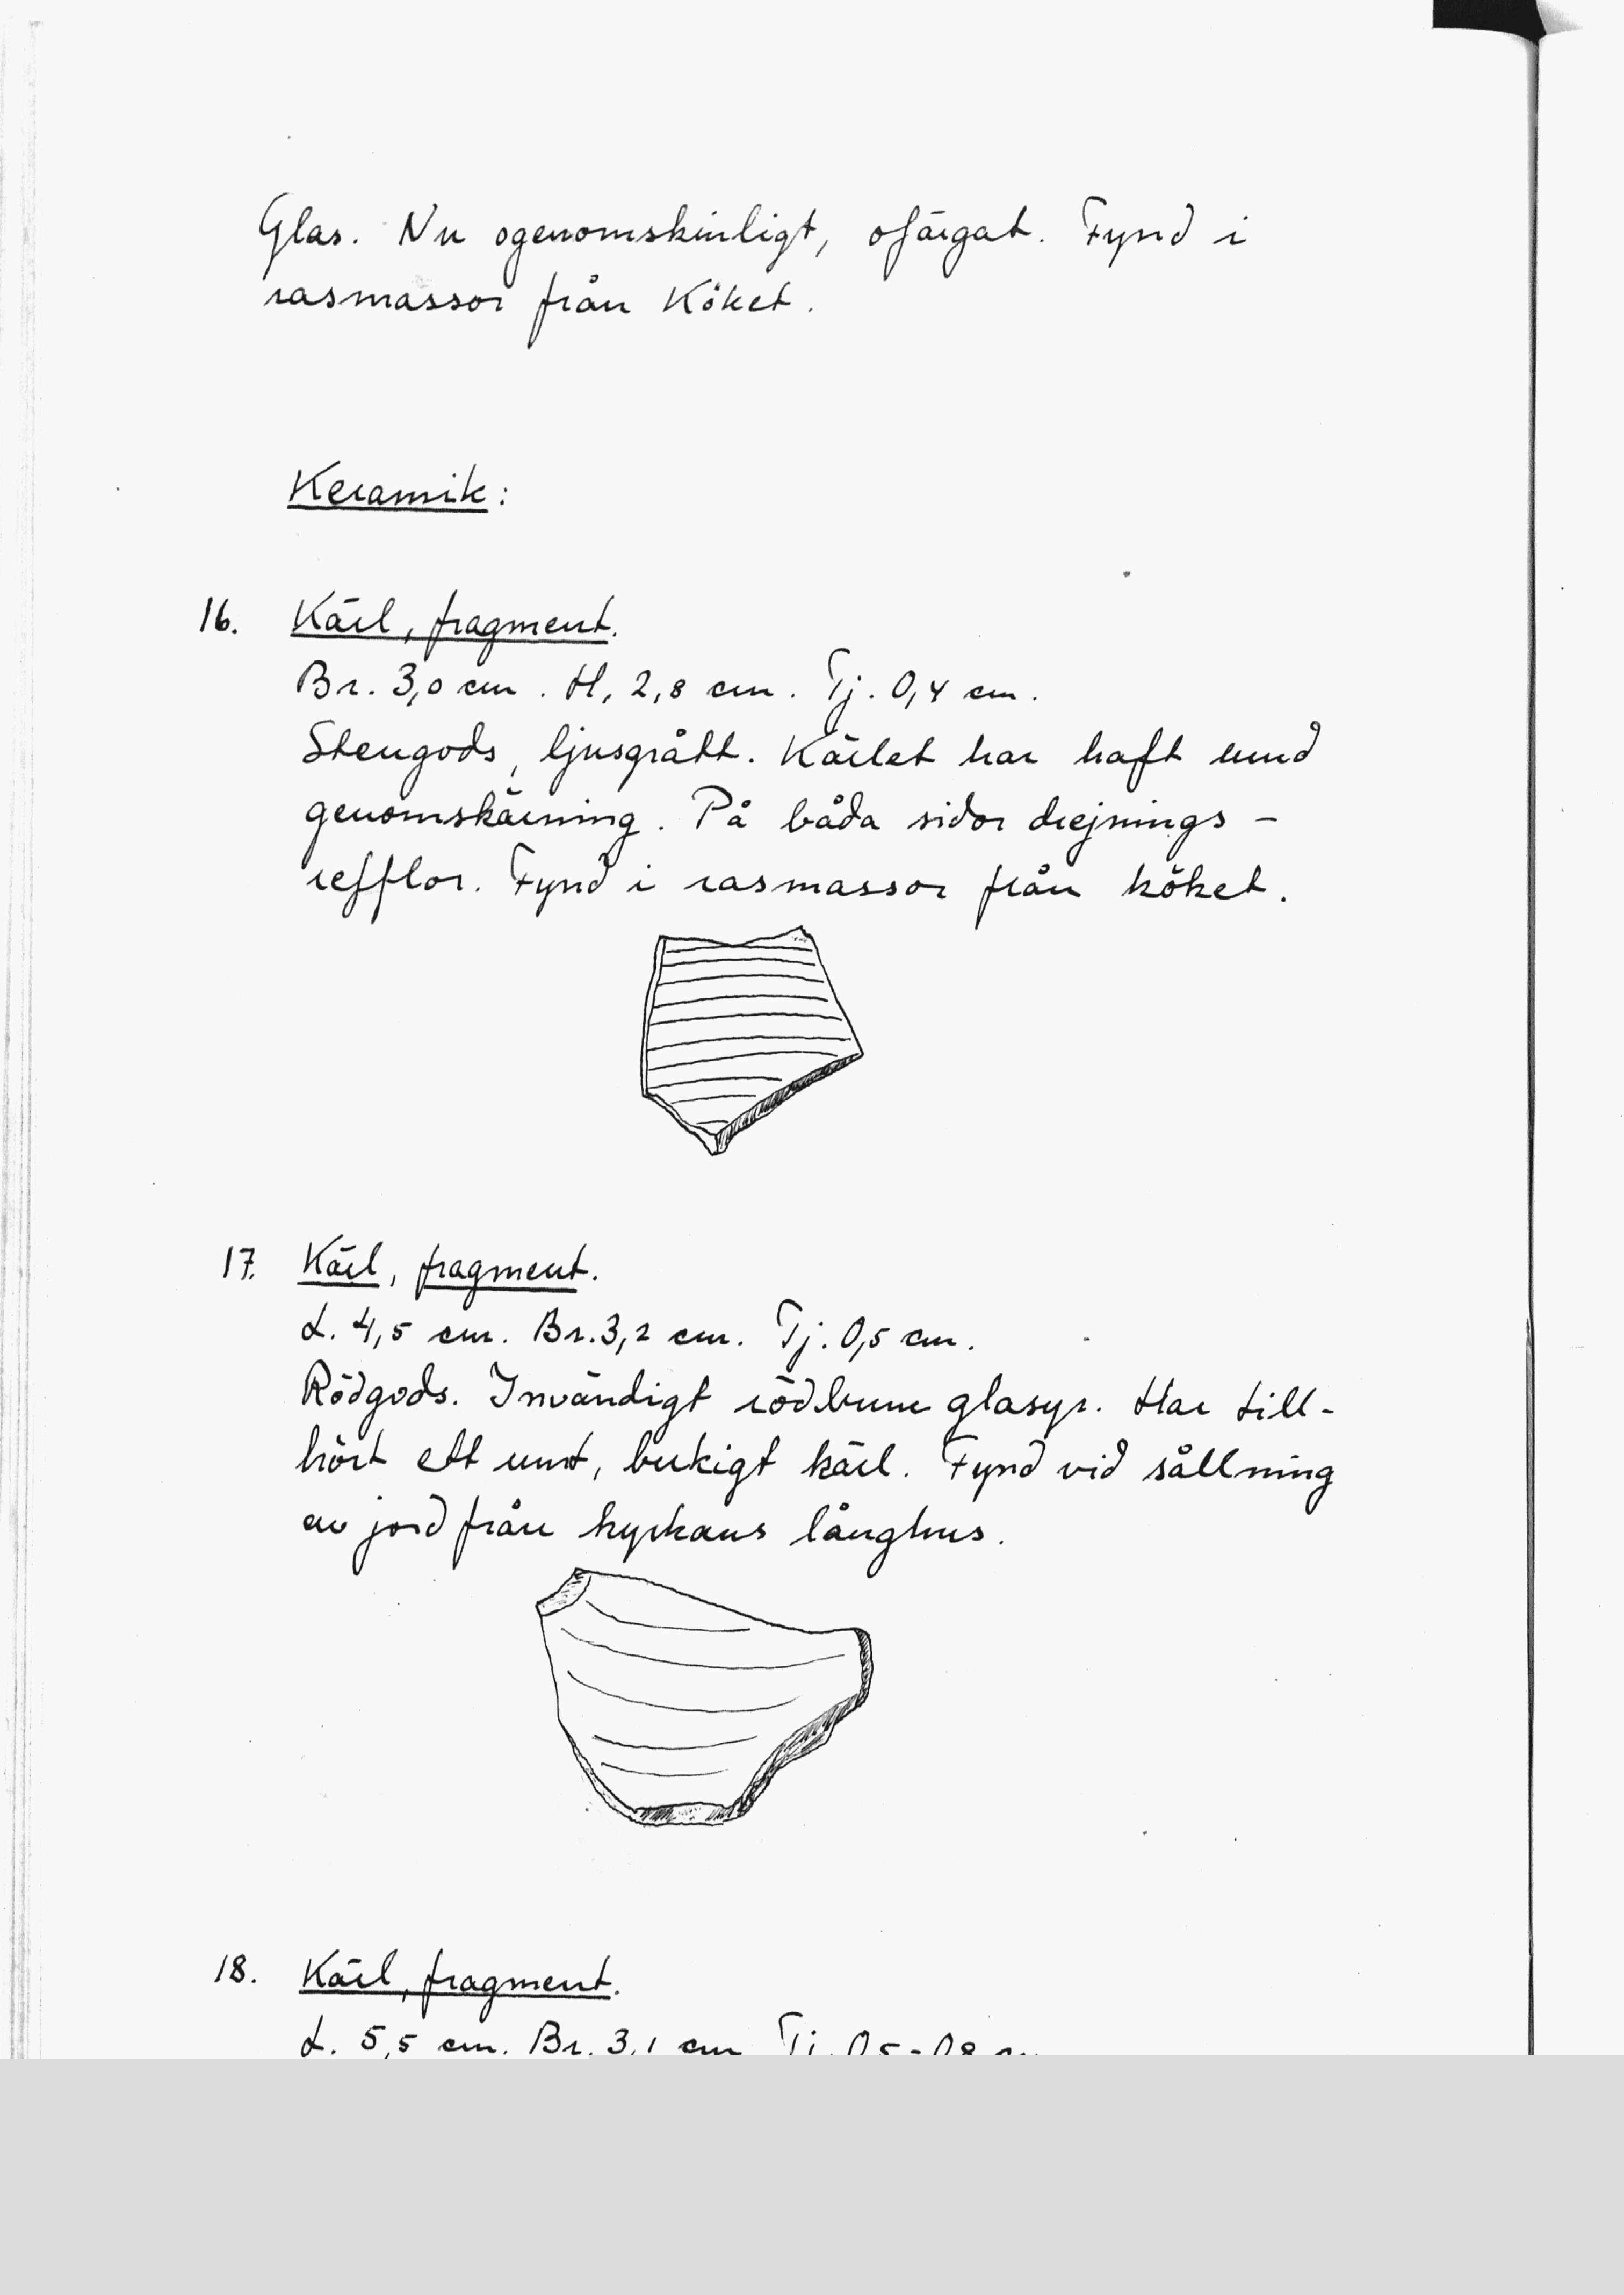 Glas. Nu ogenomskinligt, ofärgat. Fynd i
rasmassor från Köket.
Keramik:
16. Kärl, fragment.
Br. 3,0 cm. H. 2,8 cm. Tj. 0,4 cm.
Stengods, ljusgrått. Kärlet har haft rund
genomskärning. På båda sidor drejnings-
refflor. Fynd i rasmassor från köket.
17. Kärl, fragment.
L. 4,5 cm. Br. 3,2 cm. Tj. 0,5 cm.
Rödgods. Invändigt rödbrun glasyr. Har till-
hört ett runt, bukigt kärl. Fynd vid sållning
av jord från kyrkans långhus.
18. Kärl, fragment.
L. 5,5 cm. Br. 3,1 cm Tj. 0,5-0,8 cm